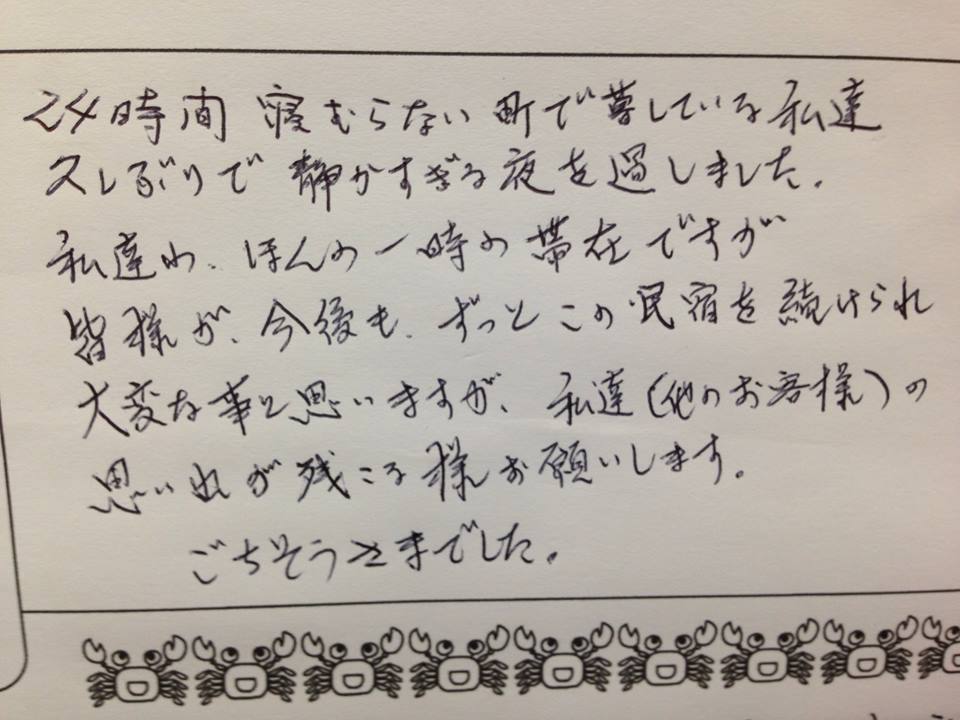 24時間 寝むらない町で暮している私達
久しぶりで静かすぎる夜を過しました。
私達わ、ほんの一時の帯在ですが
皆様が、今後も、ずっとこの民宿を続けられ
大変な事と思いますが、私達(他のお客様)の
思い出が残こる様お願いします。
ごちそうさまでした。